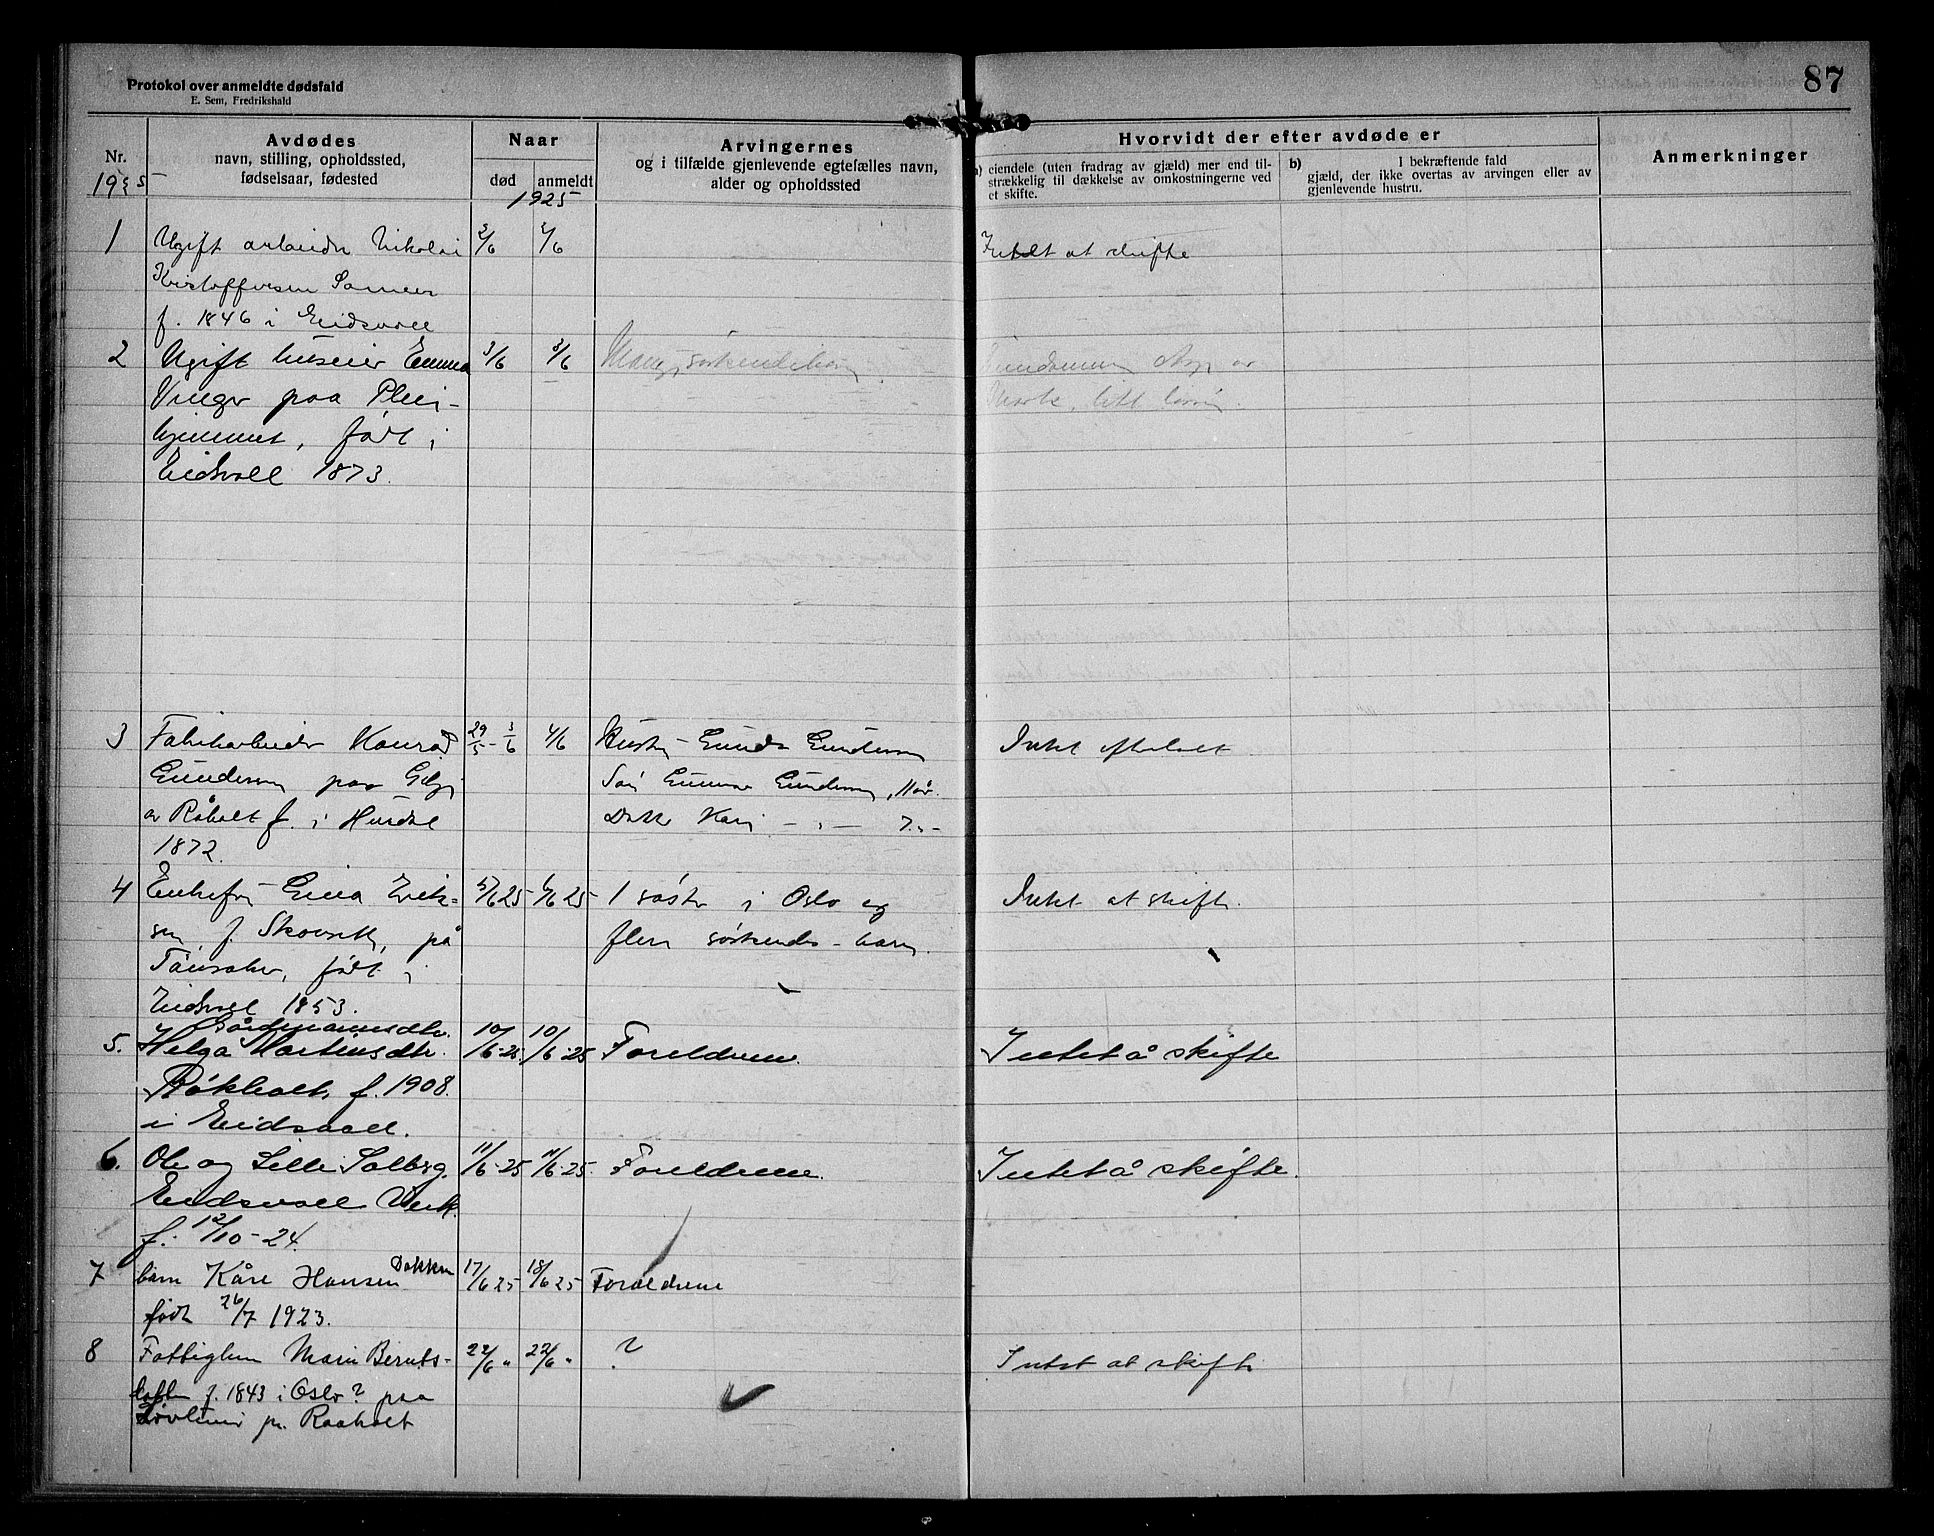 Protokol over anmeldte dødsfald
E. Sem, Fredrikshald
87
Nr.
1925
Avdødes
navn, stilling, opholdssted,
fødselsaar, fødested
Naar
død
anmeldt
1925
Arvingernes
og i tilfælde gjenlevende egtefælles navn,
alder og opholdssted
Hvorvidt der efter avdøde er
a) eiendele (uten fradrag av gjæld) mer end til-
strækkelig til dækkelse av omkostningerne ved
et skifte.
b) I bekræftende fald
gjæld, der ikke overtas av arvingen eller av
gjenlevende hustru.
Anmerkninger
1 Ugift arbeider Nikolai 2/6 2/6 Intet at skifte
Kristoffersen
f. 1846 i Eidsvoll
2 Ugift huseier Emma 3/6 3/6 søskendebarn
Vinger paa Pleie-
hjemmet, født i
Eidsvoll 1873.
3 Fabrikarbeider Konrad 29/5 - 3/6 4/6 Hustru Gunda Gundersen Intet efterlatt
Gundersen paa Søn Gunnar Gundersen, 11 år.
Råholt f. i Hurdal Datter Kari - " - 7 " -
1872.
4 Enkefru Gina Erik- 5/6 25 6/6 25 1 søster i Oslo og Intet at skifte.
sen f. på flere søskende-barn.
født i
Eidsvoll 1853.
Gårdmannsdtr.
5. Helga Martinsdtr. 10/6-25. 10/6-25 Foreldrene. Intet å skifte
Røkholt, f. 1908.
i Eidsvoll.
6. Ole og Lilli Solberg. 11/6-25 11/6-25. Foreldrene. Intet å skifte.
Eidsvoll Verk.
f. 12/10-24.
7 barn Kåre Hansen Dokken 17/6 25 18/6 25 Foreldrene
født 26/7 1923.
8 Fattiglem Marie Bernts- 22/6 " 22/6 " ? Intet at skifte
datter f. 1843 i Oslo? paa
pr. Raaholt